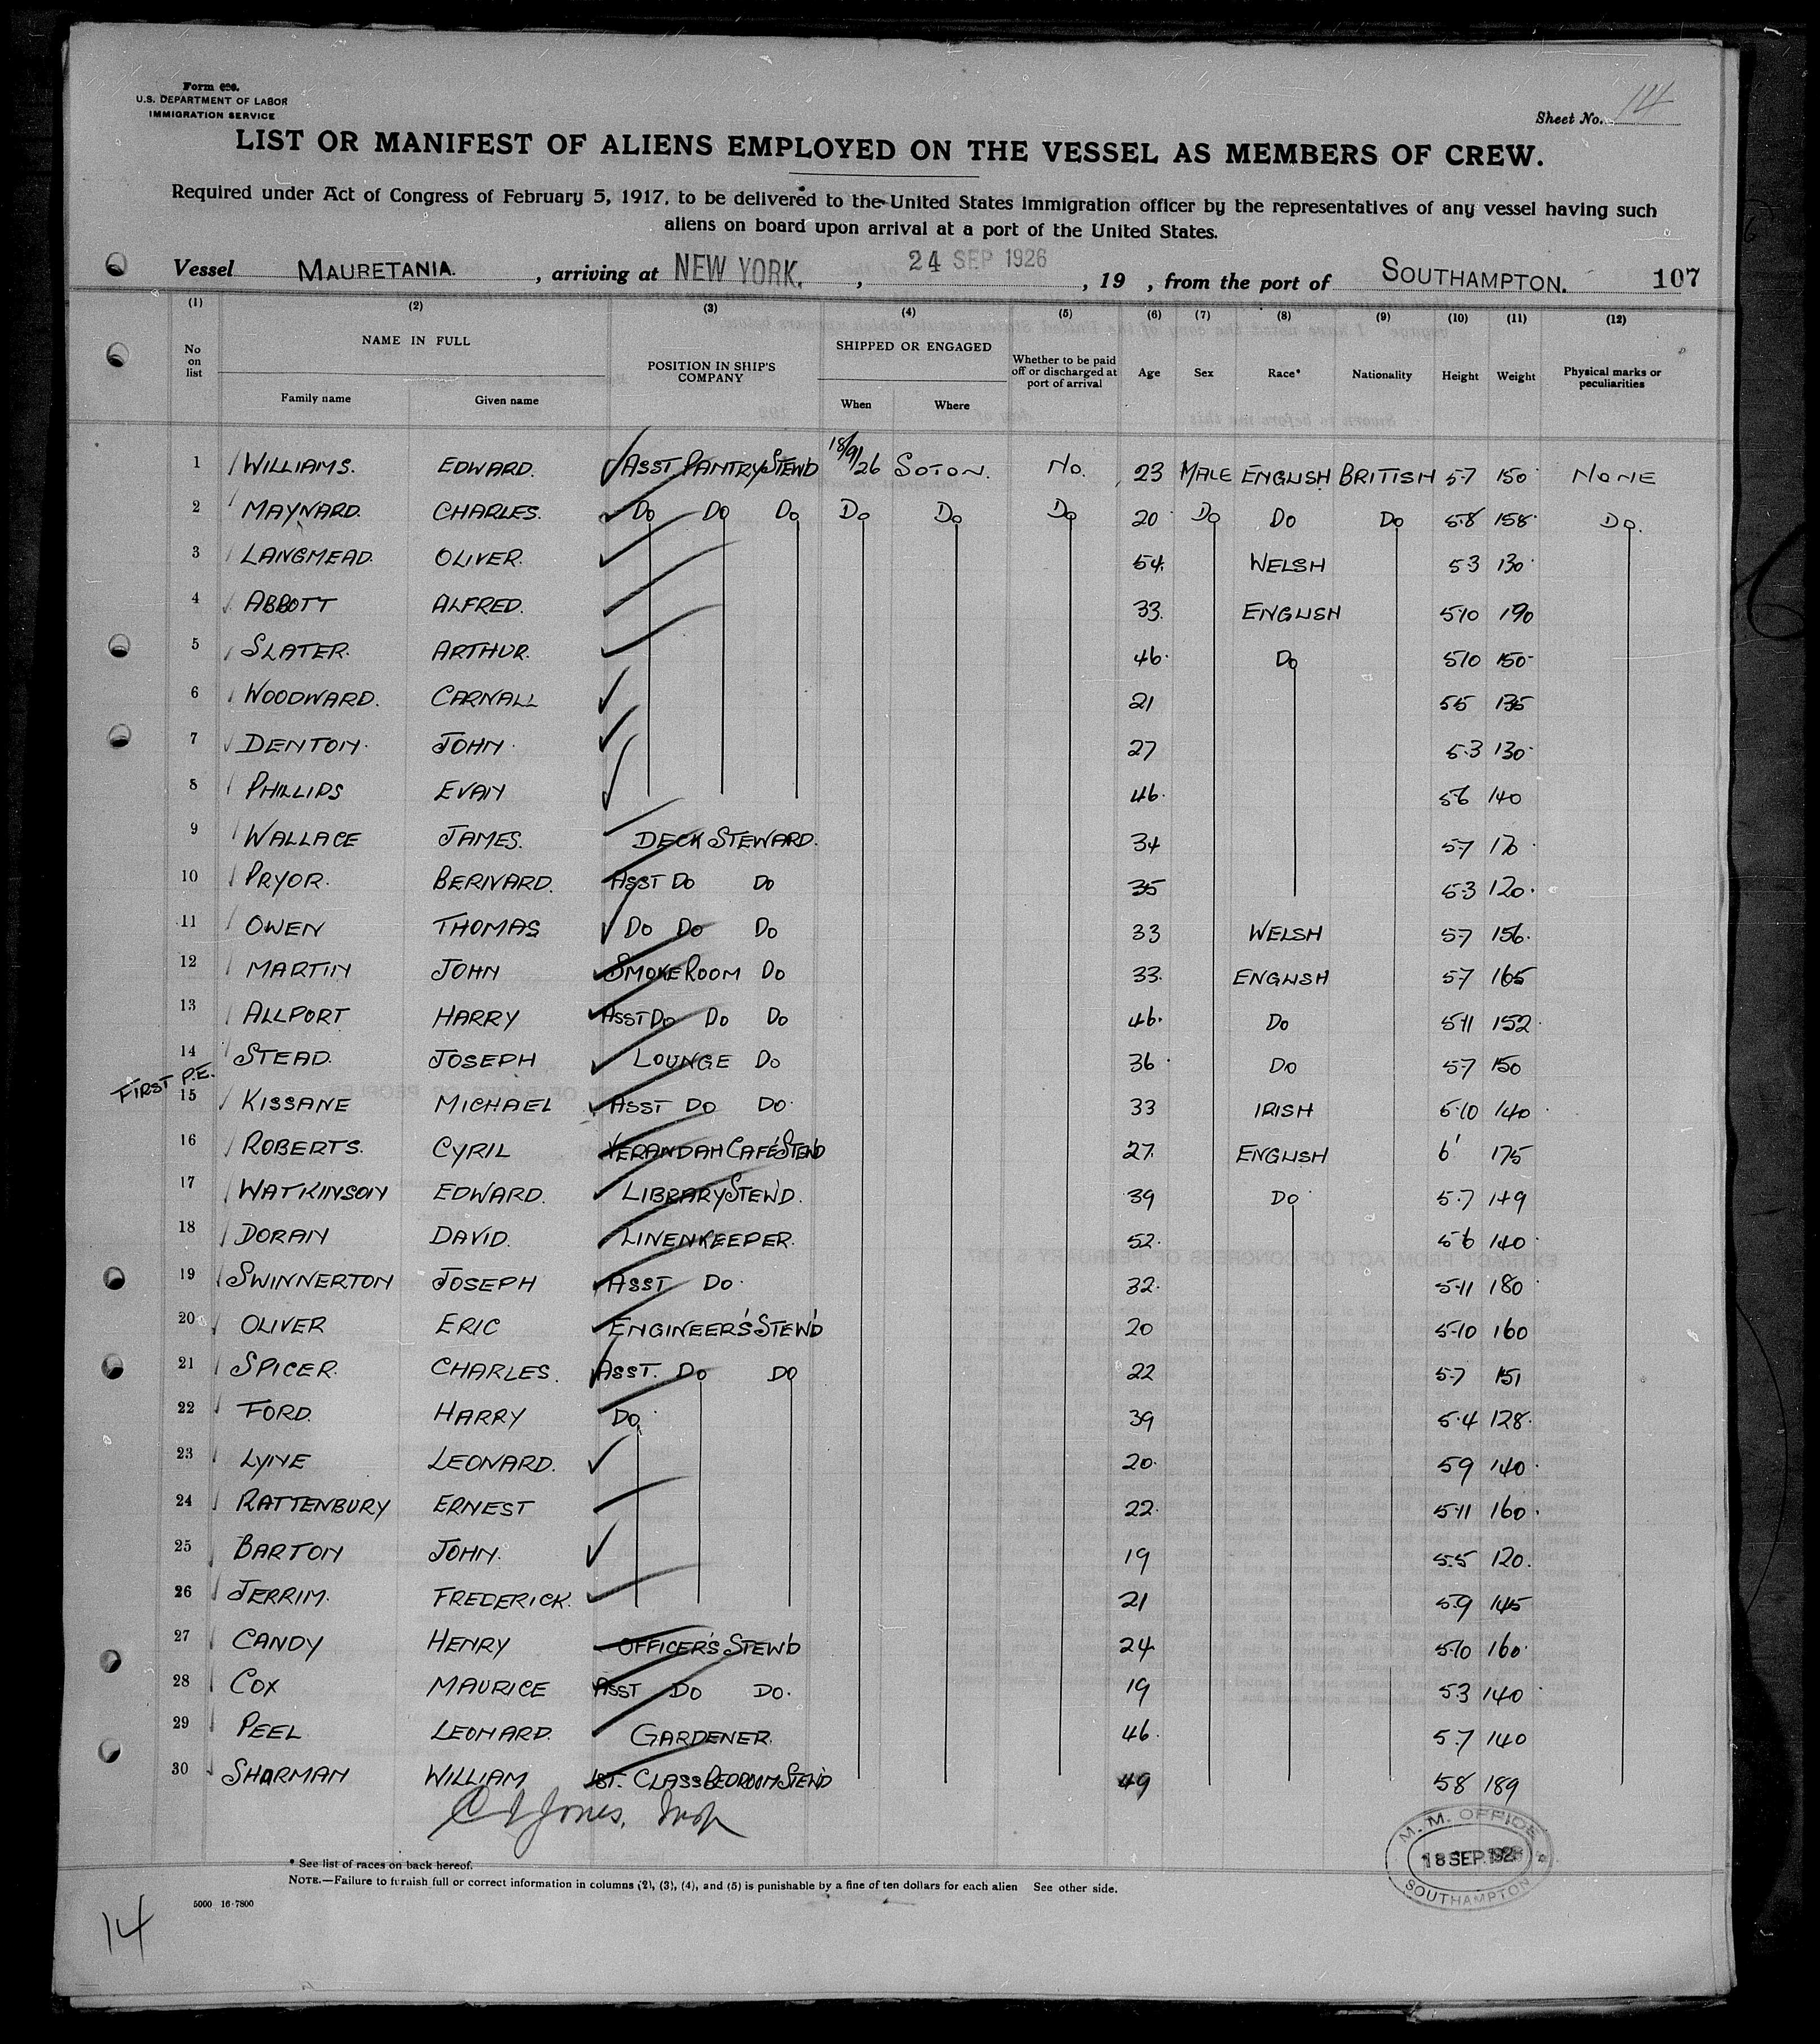 Form 680.
U.S. DEPARTMENT OF LABOR
IMMIGRATION SERVICE
Sheet No. 14
LIST OR MANIFEST OF ALIENS EMPLOYED ON THE VESSEL AS MEMBERS OF CREW.
Required under Act of Congress of February 5, 1917, to be delivered to the United States immigration officer by the representatives of any vessel having such
aliens on board upon arrival at a port of the United States.
Vessel MAURETANIA. , arriving at NEW YORK. , 24 SEP 1926 , 19 , from the port of SOUTHAMPTON. 107
(1) (2) (3) (4) (5) (6) (7) (8) (9) (10) (11) (12)
No on list NAME IN FULL Family name Given name POSITION IN SHIP'S COMPANY SHIPPED OR ENGAGED When Where Whether to be paid off or discharged at port of arrival Age Sex Race* Nationality Height Weight Physical marks or peculiarities
1 WILLIAMS. EDWARD. ASST PANTRY STEWD 18/9/26 SOTON. NO. 23 MALE ENGLISH BRITISH 5-7 150 NONE
2 MAYNARD. CHARLES. DO DO DO DO DO DO 20 DO DO DO 5-8 158 DO.
3 LANGMEAD. OLIVER. 54. WELSH 5-3 130
4 ABBOTT ALFRED. 33. ENGLISH 5-10 190
5 SLATER. ARTHUR. 46. DO 5-10 150
6 WOODWARD. CARNALL 21 5-5 135
7 DENTON. JOHN. 27 5-3 130
8 PHILLIPS EVAN 46. 5-6 140
9 WALLACE JAMES. DECK STEWARD. 34 5-7 170
10 PRYOR. BERNARD. ASST DO DO 35 5-3 120.
11 OWEN THOMAS DO DO DO 33 WELSH 5-7 156.
12 MARTIN JOHN SMOKE ROOM DO 33. ENGLISH 5-7 165
13 ALLPORT HARRY ASST DO DO DO 46. DO 5-11 152
14 STEAD. JOSEPH LOUNGE DO 36 DO 5-7 150
FIRST P.E.
15 KISSANE MICHAEL ASST DO DO. 33 IRISH 5-10 140
16 ROBERTS. CYRIL VERANDAH CAFÉ STEWD 27. ENGLISH 6' 175
17 WATKINSON EDWARD. LIBRARY STEW'D. 39 DO 5-7 149
18 DORAN DAVID. LINENKEEPER. 52. 5-6 140
19 SWINNERTON JOSEPH ASST DO. 32. 5-11 180
20 OLIVER ERIC ENGINEER'S STEW'D 20 5-10 160
21 SPICER. CHARLES. ASST. DO DO 22 5-7 151
22 FORD. HARRY DO 39 5-4 128.
23 LYNE LEONARD. 20. 5-9 140
24 RATTENBURY ERNEST 22. 5-11 160
25 BARTON JOHN. 19 5-5 120.
26 JERRIM. FREDERICK. 21 5-9 145
27 CANDY HENRY OFFICER'S STEW'D 24 5-10 160
28 COX MAURICE ASST DO DO. 19 5-3 140
29 PEEL LEONARD. GARDENER. 46. 5-7 140
30 SHARMAN WILLIAM 1ST. CLASS BEDROOM STEW'D 49 5-8 189
Jones,
M. M. OFFICE
18 SEP. 1926
SOUTHAMPTON
* See list of races on back hereof.
NOTE.—Failure to furnish full or correct information in columns (2), (3), (4), and (5) is punishable by a fine of ten dollars for each alien See other side.
5000 16-7800
14